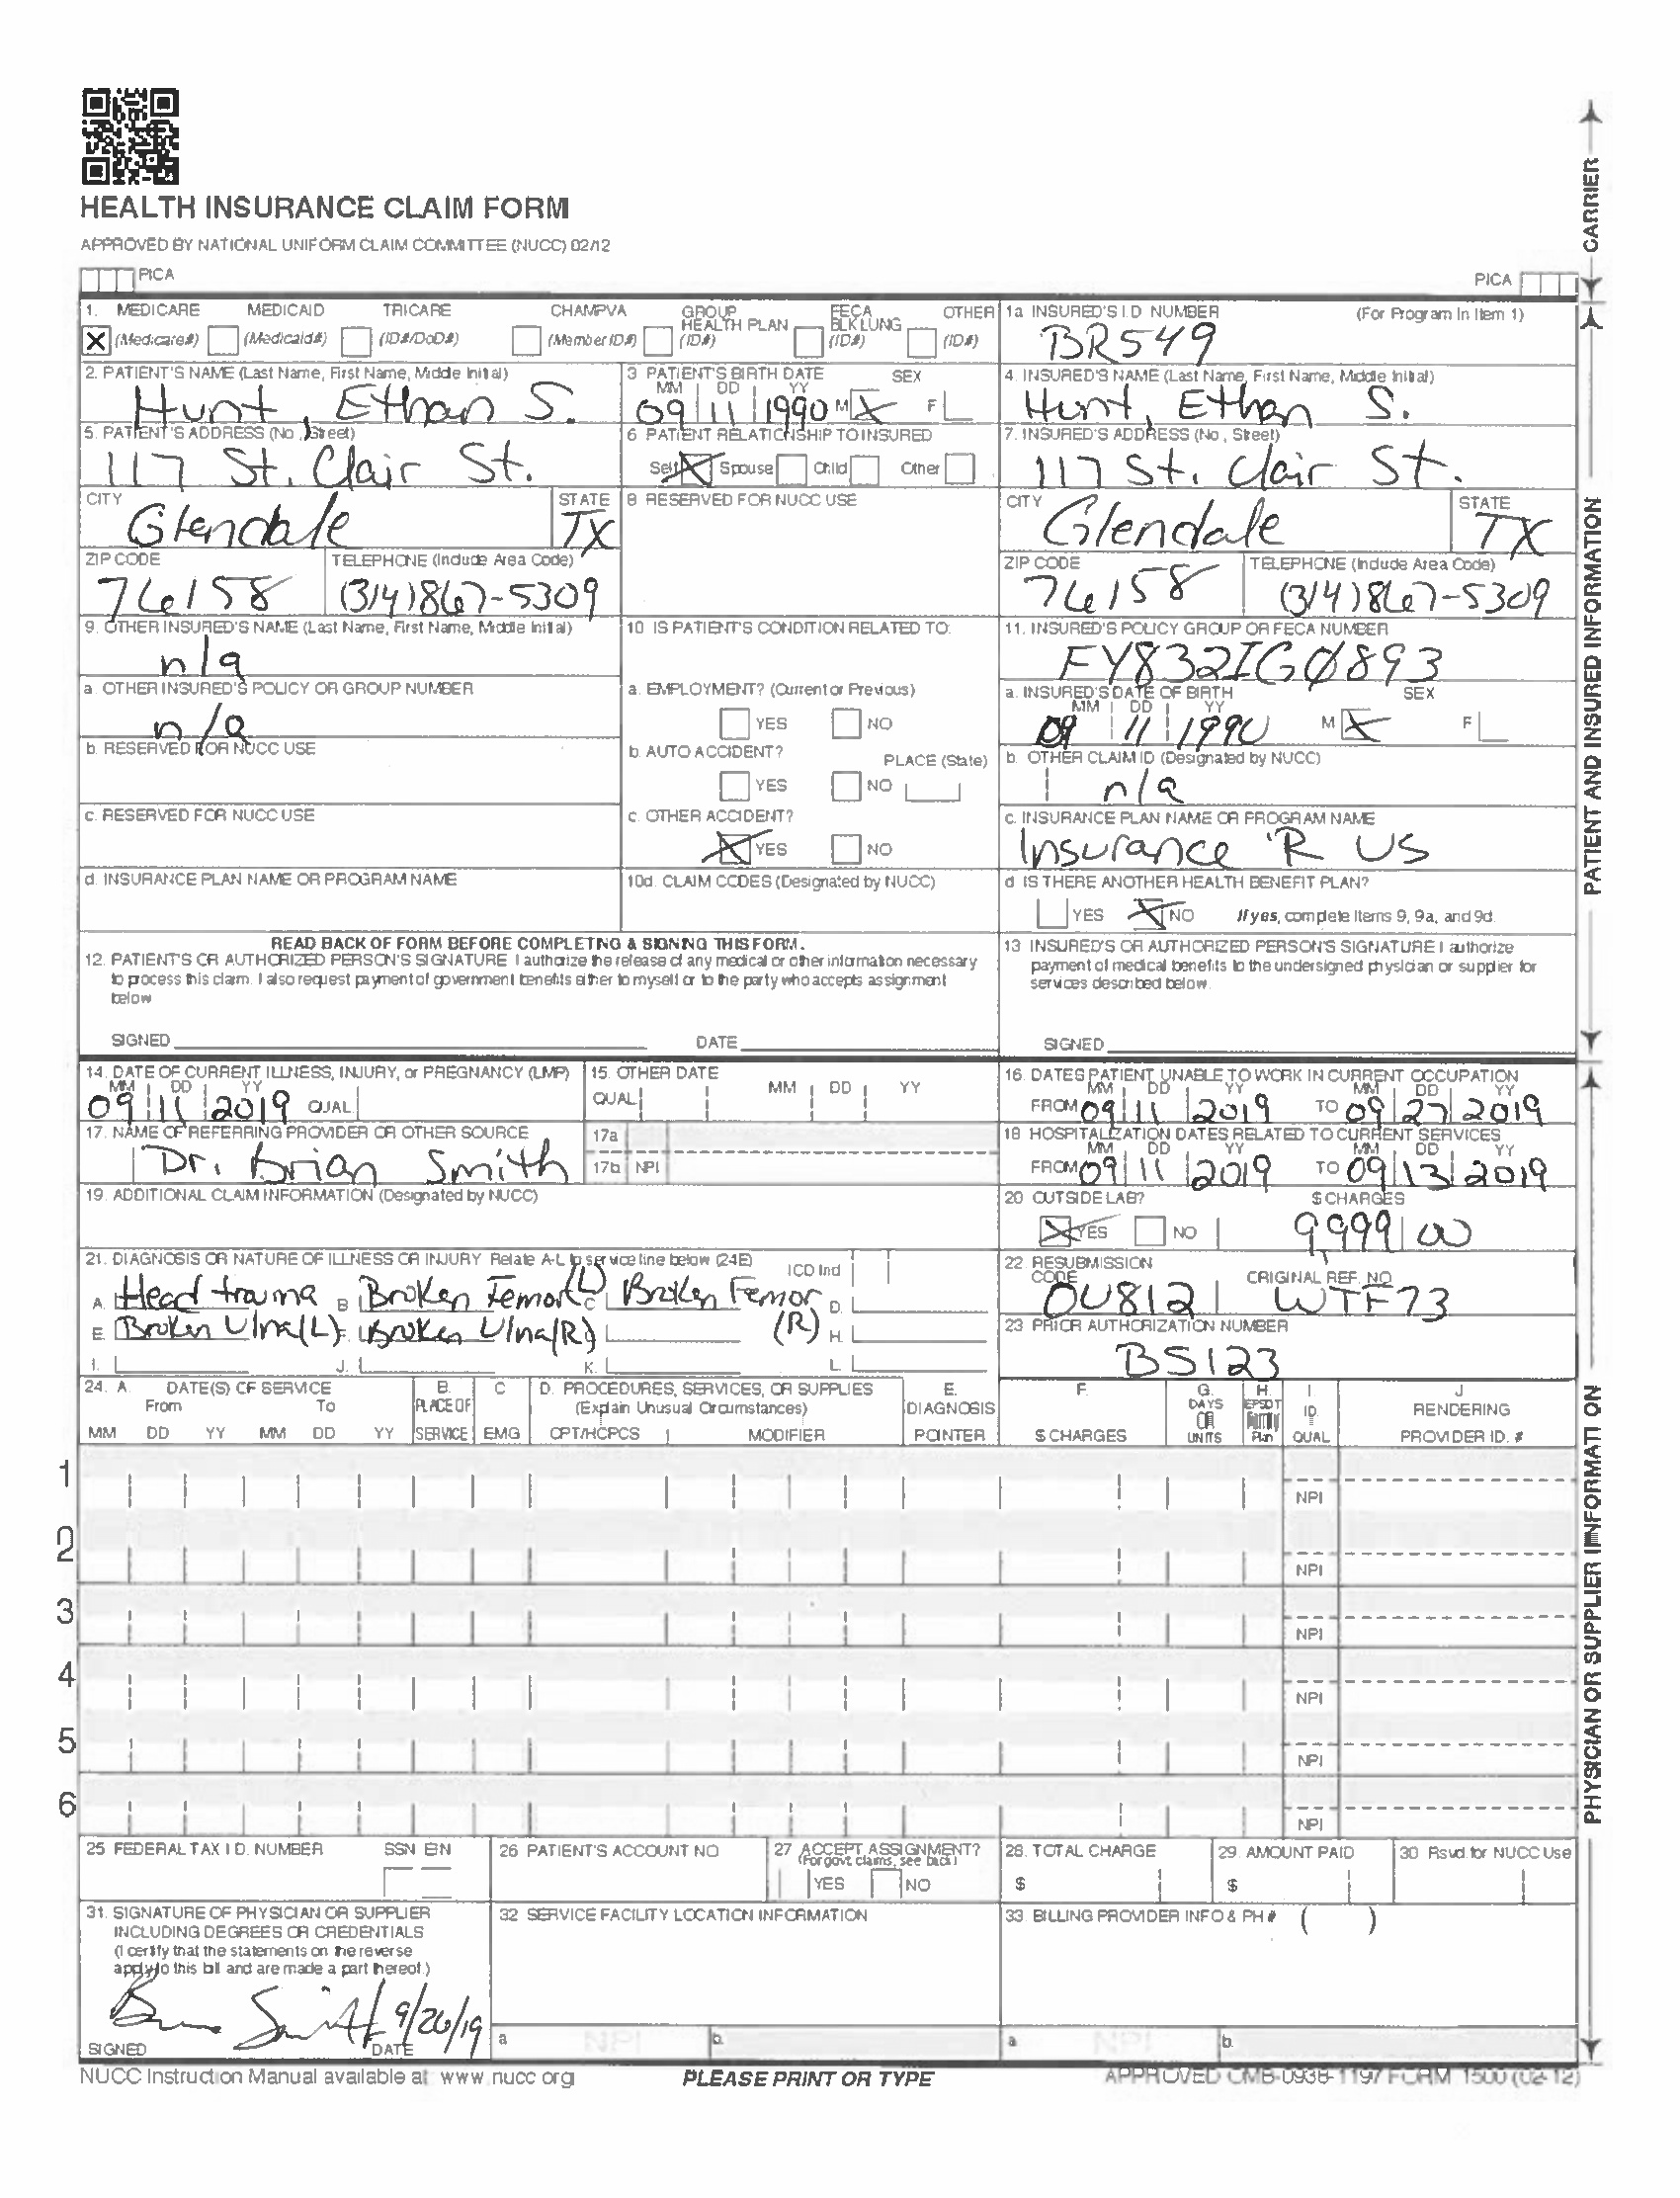 HEALTH INSURANCE CLAIM FORM
APPROVED BY NATIONAL UNIFORM CLAIM COMMITTEE (NUCC) 02/12
PICA
PICA
CARRIER
1. MEDICARE MEDICAID TRICARE CHAMPVA GROUP HEALTH PLAN FECA BLK LUNG OTHER
X (Medicare#) (Medicaid#) (ID#/DoD#) (Member ID#) (ID#) (ID#) (ID#)
1a INSURED'S I.D NUMBER (For Program In Item 1)
BR549
2. PATIENT'S NAME (Last Name, First Name, Middle Initial)
Hunt, Ethan S.
3 PATIENT'S BIRTH DATE SEX
MM DD YY
09 11 1990 M X F
4. INSURED'S NAME (Last Name, First Name, Middle Initial)
Hunt, Ethan S.
5. PATIENT'S ADDRESS (No , Street)
117 St. Clair St.
6. PATIENT RELATIONSHIP TO INSURED
Self X Spouse Child Other
7. INSURED'S ADDRESS (No , Street)
117 St. Clair St.
CITY STATE
Glendale TX
8 RESERVED FOR NUCC USE
CITY STATE
Glendale TX
ZIP CODE TELEPHONE (Include Area Code)
76158 (314)867-5309
ZIP CODE TELEPHONE (Include Area Code)
76158 (314)867-5309
9. OTHER INSURED'S NAME (Last Name, First Name, Middle Initial)
n/a
a. OTHER INSURED'S POLICY OR GROUP NUMBER
n/a
b. RESERVED FOR NUCC USE
c. RESERVED FOR NUCC USE
d. INSURANCE PLAN NAME OR PROGRAM NAME
10 IS PATIENT'S CONDITION RELATED TO:
a. EMPLOYMENT? (Current or Previous)
YES NO
b. AUTO ACCIDENT? PLACE (State)
YES NO
c. OTHER ACCIDENT?
X YES NO
10d. CLAIM CODES (Designated by NUCC)
11. INSURED'S POLICY GROUP OR FECA NUMBER
FY832IGØ893
a. INSURED'S DATE OF BIRTH SEX
MM DD YY
09 11 1990 M X F
b. OTHER CLAIM ID (Designated by NUCC)
n/a
c. INSURANCE PLAN NAME OR PROGRAM NAME
Insurance 'R US
d IS THERE ANOTHER HEALTH BENEFIT PLAN?
YES X NO If yes, complete Items 9, 9a, and 9d.
PATIENT AND INSURED INFORMATION
READ BACK OF FORM BEFORE COMPLETING & SIGNING THIS FORM.
12. PATIENT'S OR AUTHORIZED PERSON'S SIGNATURE I authorize the release of any medical or other information necessary
to process this claim. I also request payment of government benefits either to myself or to the party who accepts assignment
below
SIGNED DATE
13 INSURED'S OR AUTHORIZED PERSON'S SIGNATURE I authorize
payment of medical benefits to the undersigned physician or supplier for
services described below.
SIGNED
14. DATE OF CURRENT ILLNESS, INJURY, or PREGNANCY (LMP)
MM DD YY
09 11 2019 QUAL
15. OTHER DATE
QUAL MM DD YY
16. DATES PATIENT UNABLE TO WORK IN CURRENT OCCUPATION
MM DD YY MM DD YY
FROM 09 11 2019 TO 09 27 2019
17. NAME OF REFERRING PROVIDER OR OTHER SOURCE
Dr. Brian Smith
17a
17b NPI
18 HOSPITALIZATION DATES RELATED TO CURRENT SERVICES
MM DD YY MM DD YY
FROM 09 11 2019 TO 09 13 2019
19. ADDITIONAL CLAIM INFORMATION (Designated by NUCC)
20 OUTSIDE LAB? $ CHARGES
X YES NO 9999 00
21. DIAGNOSIS OR NATURE OF ILLNESS OR INJURY Relate A-L to service line below (24E) ICD Ind
A. Head trauma B Broken Femor (L) C Broken Femor (R) D.
E. Broken Ulna(L) F. Broken Ulna(R) H.
I. J. K. L.
22. RESUBMISSION CODE ORIGINAL REF. NO
OU812 WTF73
23 PRIOR AUTHORIZATION NUMBER
BS123
24. A. DATE(S) OF SERVICE B. C D. PROCEDURES, SERVICES, OR SUPPLIES E. F. G. H. I J
From To PLACE OF (Explain Unusual Circumstances) DIAGNOSIS DAYS OR UNITS EPSDT Family Plan ID. RENDERING
MM DD YY MM DD YY SERVICE EMG CPT/HCPCS MODIFIER POINTER $ CHARGES QUAL PROVIDER ID. #
1
NPI
2
NPI
3
NPI
4
NPI
5
NPI
6
NPI
PHYSICIAN OR SUPPLIER INFORMATION
25 FEDERAL TAX I D. NUMBER SSN EIN
26 PATIENT'S ACCOUNT NO
27 ACCEPT ASSIGNMENT?
(For govt. claims, see back)
YES NO
28. TOTAL CHARGE
$
29. AMOUNT PAID
$
30 Rsvd. for NUCC Use
31. SIGNATURE OF PHYSICIAN OR SUPPLIER
INCLUDING DEGREES OR CREDENTIALS
(I certify that the statements on the reverse
apply to this bill and are made a part thereof.)
Smith 9/26/19
SIGNED DATE
32 SERVICE FACILITY LOCATION INFORMATION
a NPI b.
33. BILLING PROVIDER INFO & PH # ( )
a NPI b.
NUCC Instruction Manual available at www.nucc.org
PLEASE PRINT OR TYPE
APPROVED OMB-0938-1197 FORM 1500 (02-12)